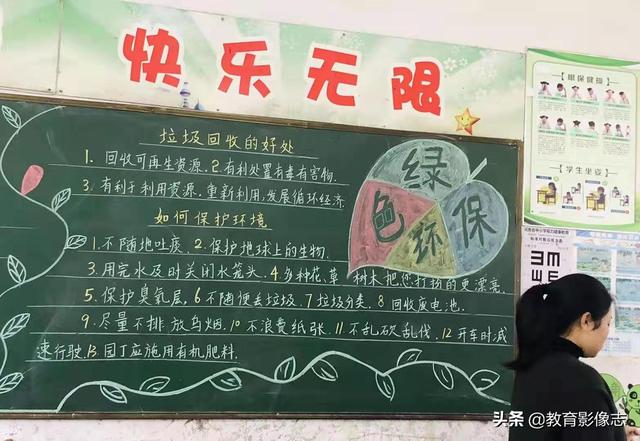 快乐无限
垃圾回收的好处
1. 回收可再生资源. 2. 有利处置有毒有害物.
3. 有利于利用资源. 重新利用,发展循环经济
如何保护环境
1. 不随地吐痰. 2. 保护地球上的生物.
3. 用完水及时关闭水笼头. 4. 多种花、草、树木把您打扮的更漂亮.
5. 保护臭氧层. 6 不随便丢垃圾. 7 垃圾分类. 8 回收废电池.
9. 尽量不排放乌烟. 10 不浪费纸张. 11 不乱砍乱伐. 12 开车时减
速行驶. 13. 园丁应施用有机肥料.
绿
色环保
眼保健操
学生坐姿
头条 @教育影像志